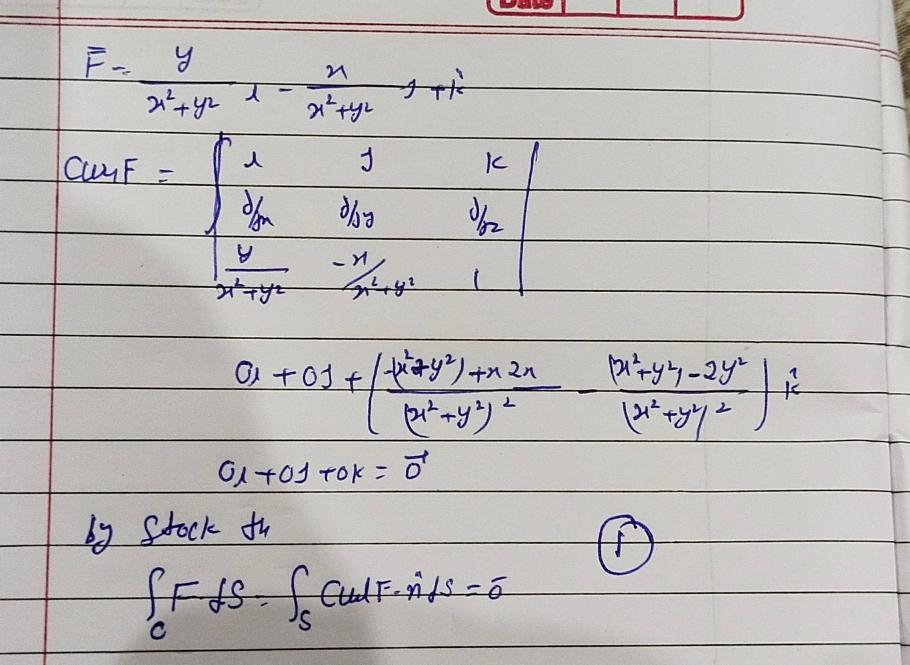 Date
F̄ = y/(x²+y²) i - x/(x²+y²) j + k̂
Curl F = | i j k |
| ∂/∂x ∂/∂y ∂/∂z |
| y/(x²+y²) -x/(x²+y²) 1 |
0i + 0j + ( (-(x²+y²) + x 2x)/(x²+y²)² - ((x²+y²) - 2y²)/(x²+y²)² ) k̂
0i + 0j + 0k = 0⃗
by Stock th
∫_C F dS = ∫_S Curl F · n̂ dS = 0̄
①